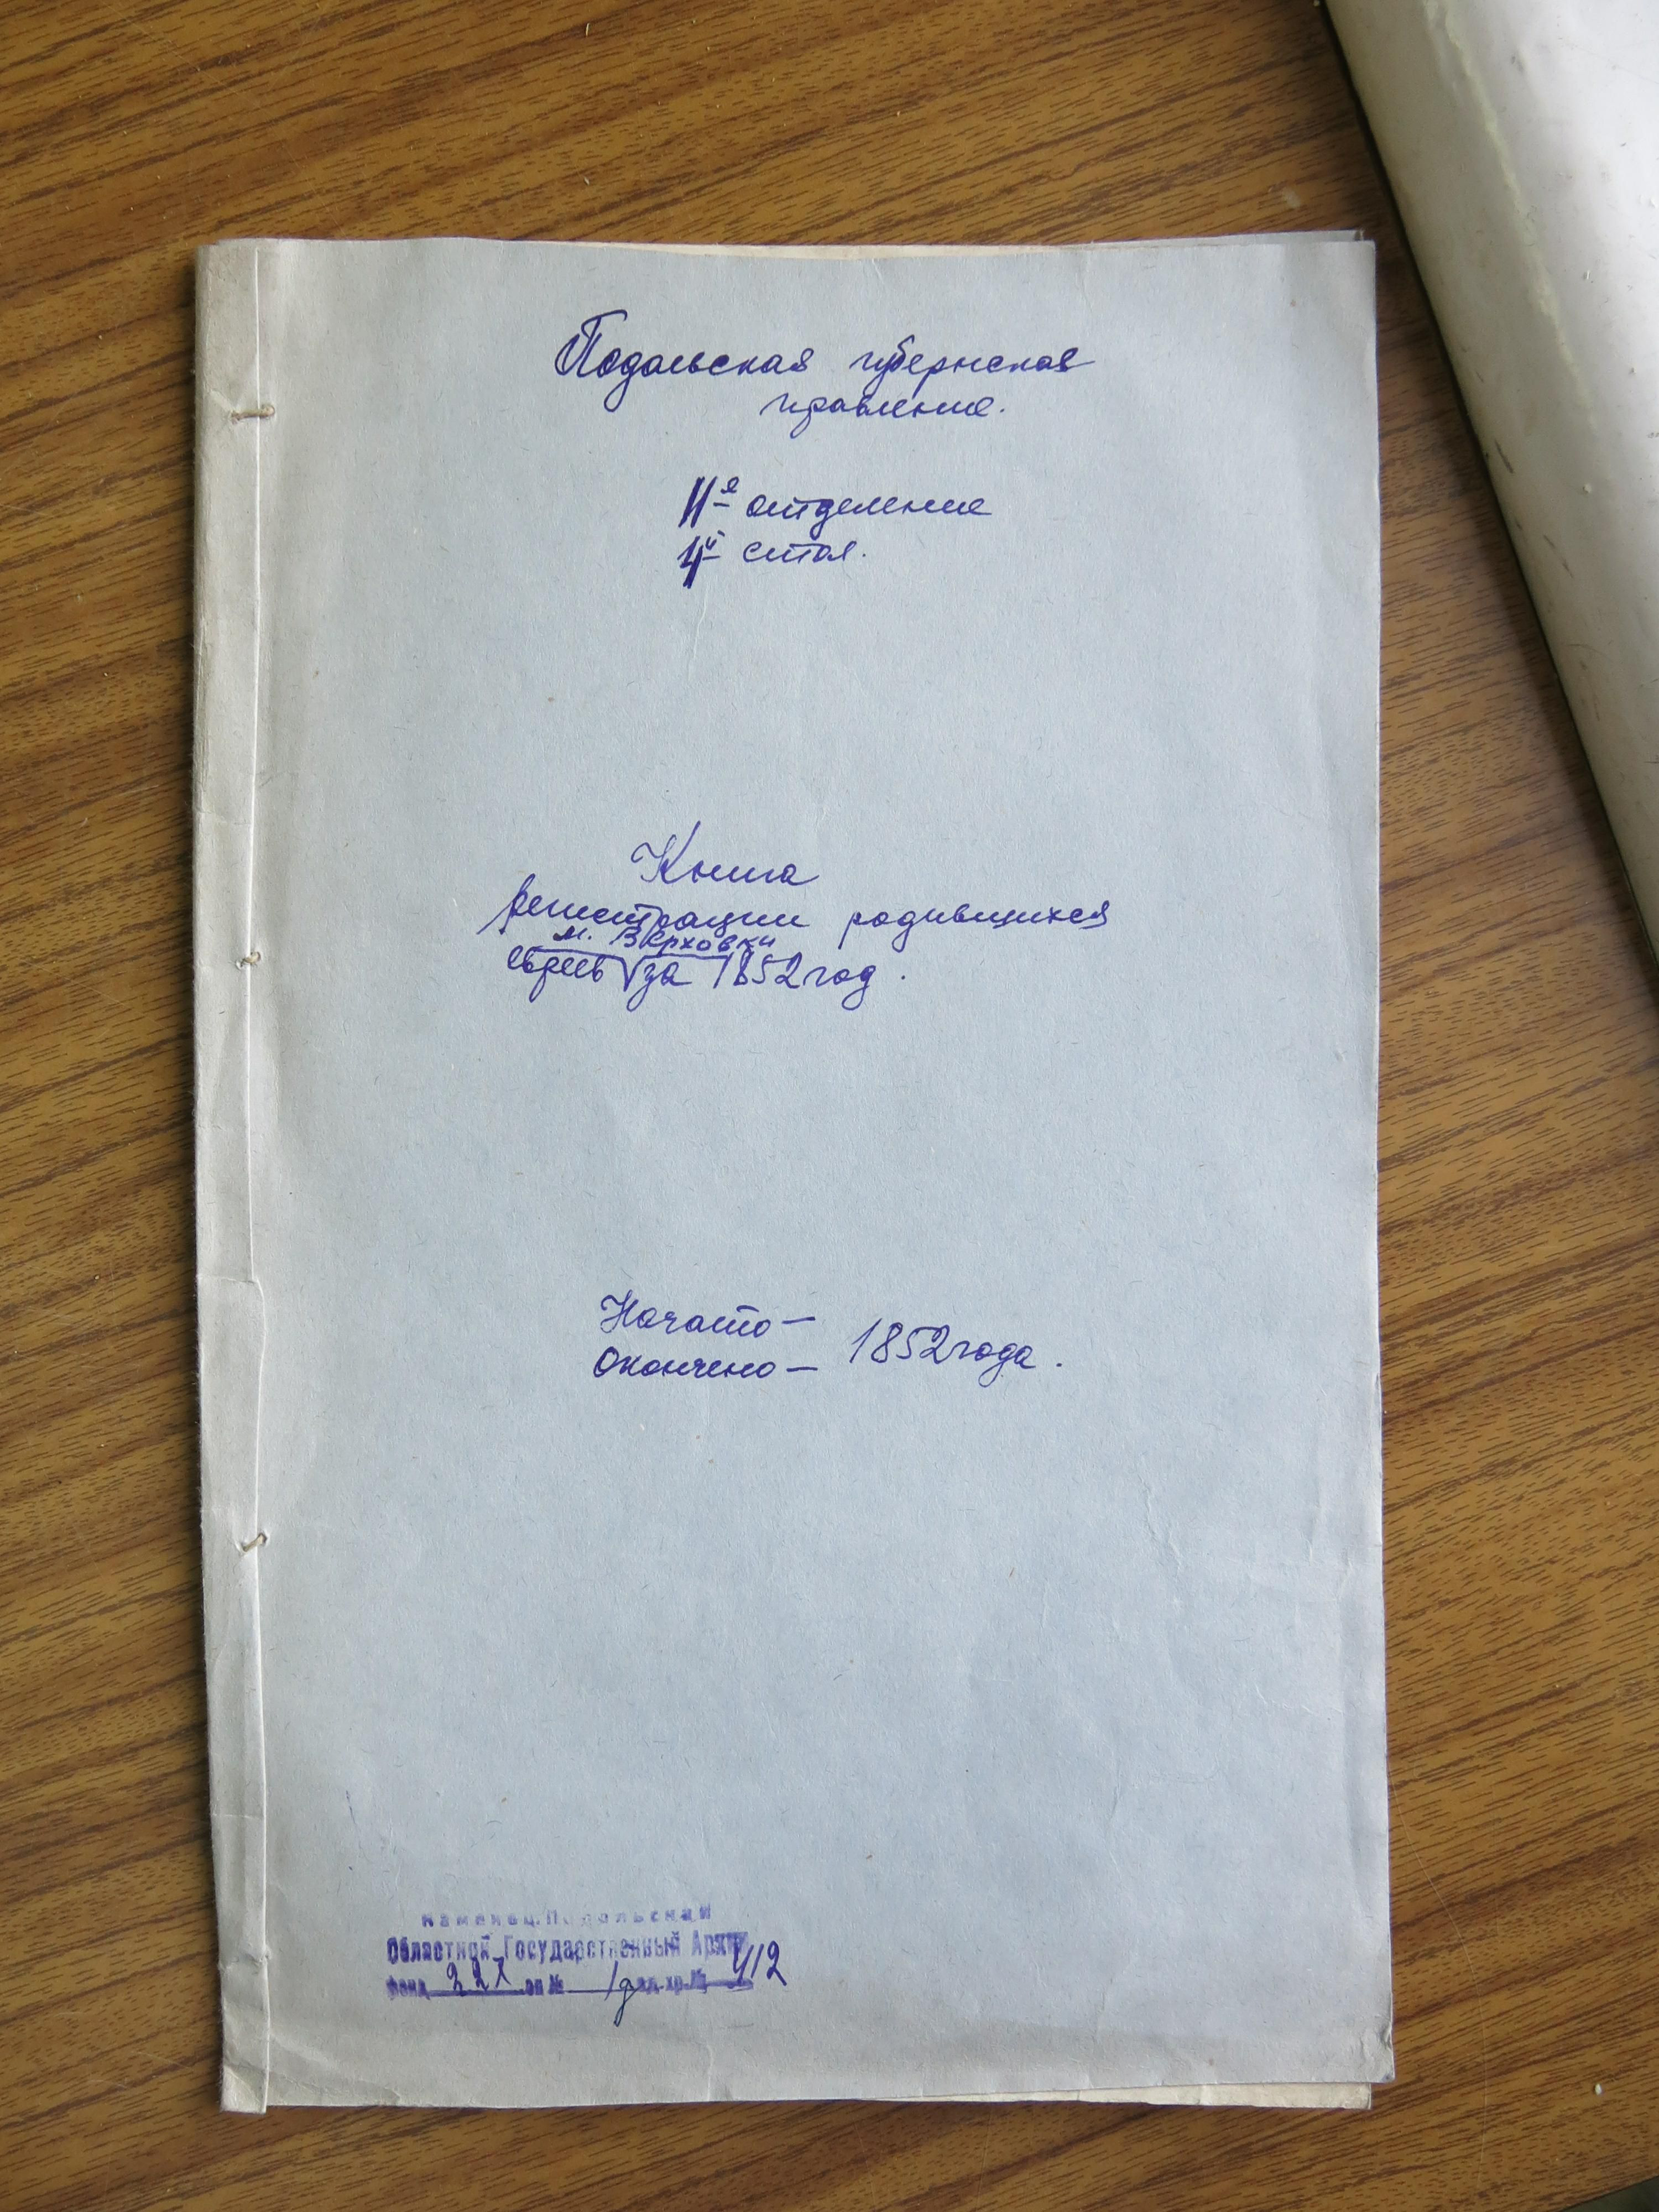 Подольская губернская
правление.
II-е отделение
4й стол.
Книга
регистрации родившихся
м. Верховки
евреев за 1852 год.
Начато —
Окончено — 1852 года.
Каменец-Подольский
Областной Государственный Архив
фонд 227 оп № 1д ед. хр. №